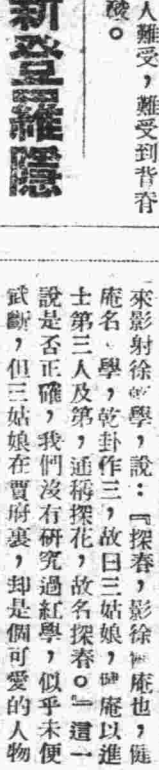 人難受，難受到背脊
酸。
新登羅隱
來影射徐學，說：『探春，影徐庵也，健
庵名學，乾卦作三，故曰三姑娘，健庵以進
士第三人及第，通稱探花，故名探春。』這一
說是否正確，我們沒有研究過紅學，似乎未便
武斷，但三姑娘在賈府裏，却是個可愛的人物